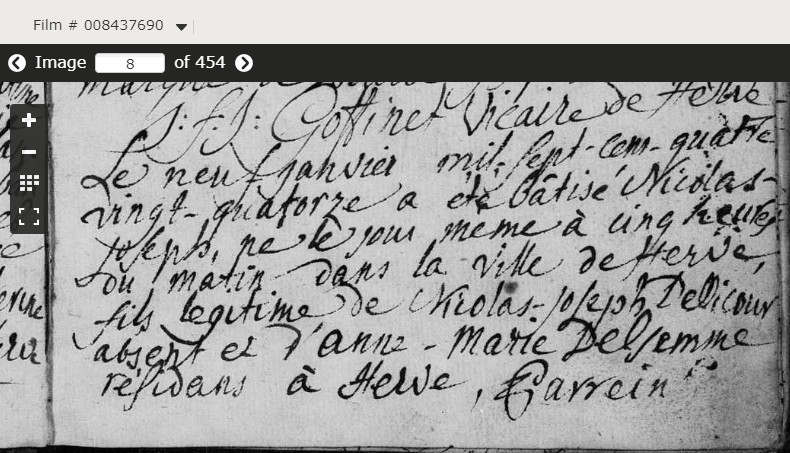 Film # 008437690
Image 8 of 454
J: f. J: Goffinet Vicaire de Herve
Le neuf janvier mil-sept-cent-quatre
vingt-quatorze a eté bâtisé Nicolas-
joseph, né le jour meme à cinq heures
du matin dans la ville de Herve,
fils legitime de Nicolas-joseph Delicour
absent et d'anne-Marie Delsemme
résidans à Herve,